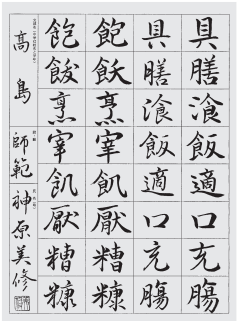 具膳湌飯適口充膓
具膳湌飯適口充膓
飽飫烹宰飢厭糟糠
飽飫烹宰飢厭糟糠
高島 師範 神原美修